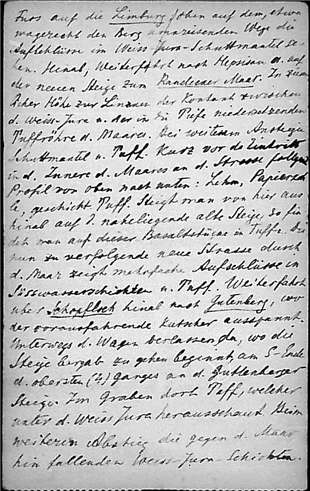 Kurs auf die Limburg sehen auf dem, etwa
wagerecht den Berg umkreisenden Wege die
Aufschlüsse im Weiss-Jura-Schuttmantel se-
hen. Hinab, Weiterfahrt nach Hepsisau d. auf
der neuen Steige zum Randecker Maar. In ziem
licher Höhe zur Linken der Kontakt zwischen
d. Weiss-Jura u. der in die Tiefe niedersetzenden
Tuffröhre d. Maares. Bei weiterem Anstiege
Schuttmantel u. Tuff. Kurz vor d. Eintritt
in d. Innere d. Maares an d. Strasse folgendes
Profil von oben nach unten: Lehm, Papierschie
fer, geschicht. Tuff. Steigt man von hier aus
hinab auf d. naheliegende alte Steige, so fin
det man auf dieser Basaltstücke im Tuffe. Die
nun zu verfolgende neue Strasse durch
d. Maar zeigt mehrfache Aufschlüsse in
Süsswasserschichten u. Tuff. Weiterfahrt
über Schopfloch hinab nach Gutenberg, wo
der vorausfahrende Kutscher ausspannt.
Unterwegs d. Wagen verlassen da, wo die
Steige bergab zu gehen beginnt, am S-Ende
d. obersten Ganges an d. Guttenberger
Steige. Im Graben dort Tuff, welcher
unter d. Weiss Jura herausschaut. Beim
weiteren Abstieg die gegen d. Maar
hin fallenden Weiss-Jura-Schichten.